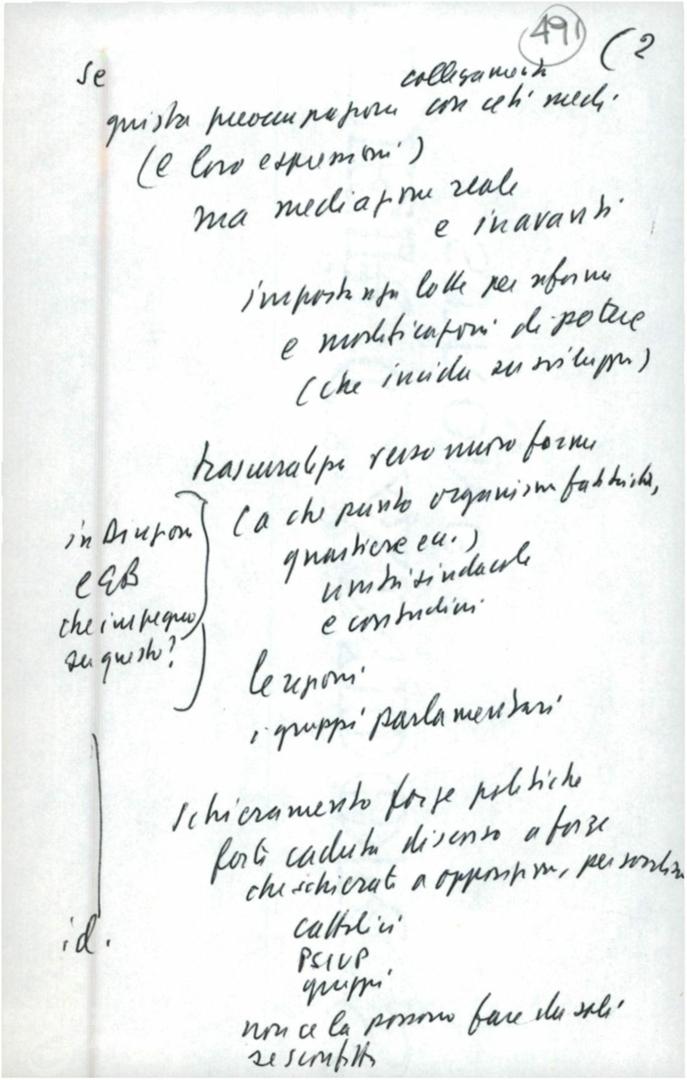 491 (2
se
collegamenti
giusta preoccupazione con ceti medi
(e loro espressioni)
ma mediazione reale
e in avanti
lotte per riforme
e modificazioni di potere
(che incida su sviluppo)
verso nuove forme
(a che punto organismi fabbrica,
quartiere ecc.)
unità sindacale
e contadini
in Direzione
e GB
che impegno
su questo?
le regioni
i gruppi parlamentari
schieramento forze politiche
forte caduta discorso a forze
che schierati a opposizione,
id.
cattolici
PSIUP
gruppi
non ce la possono fare da soli